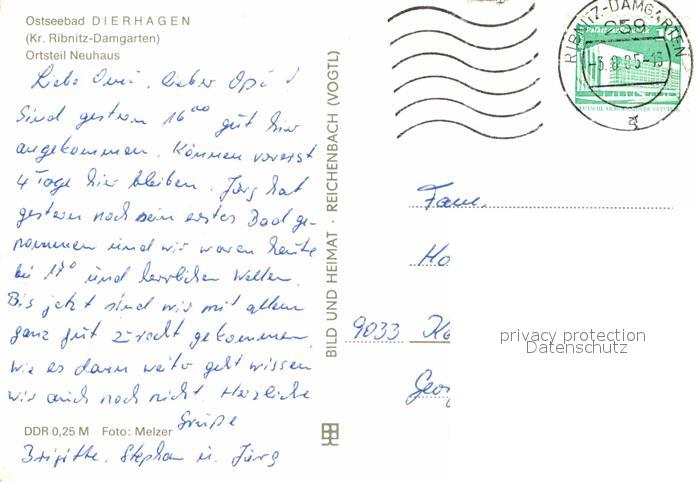 Ostseebad DIERHAGEN
(Kr. Ribnitz-Damgarten)
Ortsteil Neuhaus
Liebe Omi, lieber Opi!
Sind gestern 16⁰⁰ gut hier
angekommen. Können vorerst
4 Tage hier bleiben. Jörg hat
gestern noch sein erstes Bad ge-
nommen und wir waren heute
bei 17° und herrlichen Wellen.
Bis jetzt sind wir mit allem
ganz gut zurecht gekommen,
wie es dann weiter geht wissen
wir auch noch nicht. Herzliche
Grüße
Brigitte, Stephan u. Jörg
DDR 0,25 M Foto: Melzer
BILD UND HEIMAT · REICHENBACH (VOGTL)
RIBNITZ-DAMGARTEN
259
-3.8.85-13
a
Fam.
Ho
9033 K
Geor
privacy protection
Datenschutz